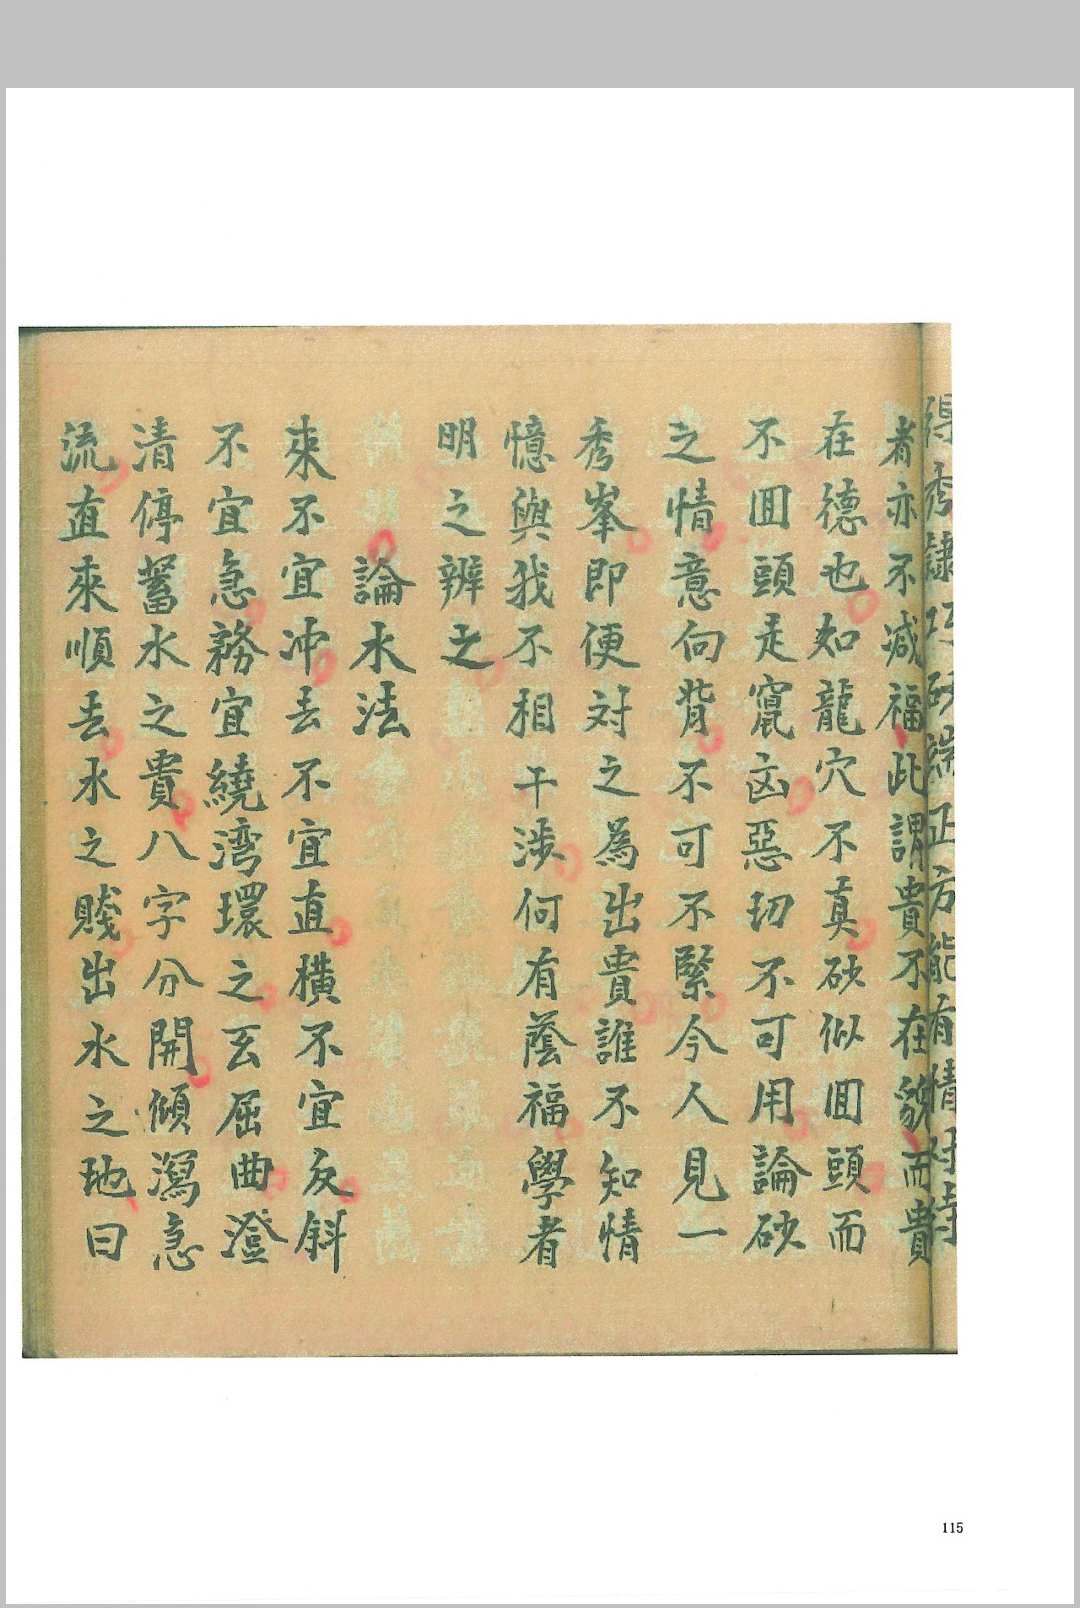 者亦不减福此謂貴不在貌而貴
在德也如龍穴不真砂似囬頭而
不囬頭走竄凶惡切不可用論砂
之情意向背不可不緊今人見一
秀峯即便対之為出貴誰不知情
憶與我不相干涉何有蔭福學者
明之辨之
論水法
來不宜冲去不宜直橫不宜反斜
不宜急務宜繞湾環之玄屈曲澄
清停蓄水之貴八字分開傾瀉急
流直來順去水之賤出水之地曰
115